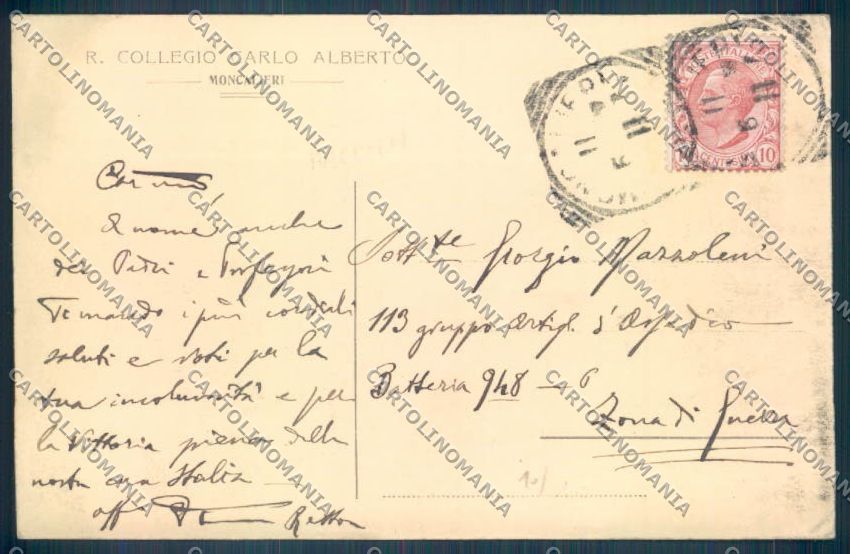 R. COLLEGIO CARLO ALBERTO
MONCALIERI
Carmo,
A nome anche
dei Padri e Professori
Ti mando i più cordiali
saluti e voti per la
tua incolumità e per
la Vittoria piena della
nostra cara Italia
aff
Rettor
Sott.te Giorgio Mazzoleni
113 gruppo Artigl. d'Assedio
Batteria 948 - 6
Zona di Guerra
POSTE ITALIANE
CENT. 10
CARTOLINOMANIA